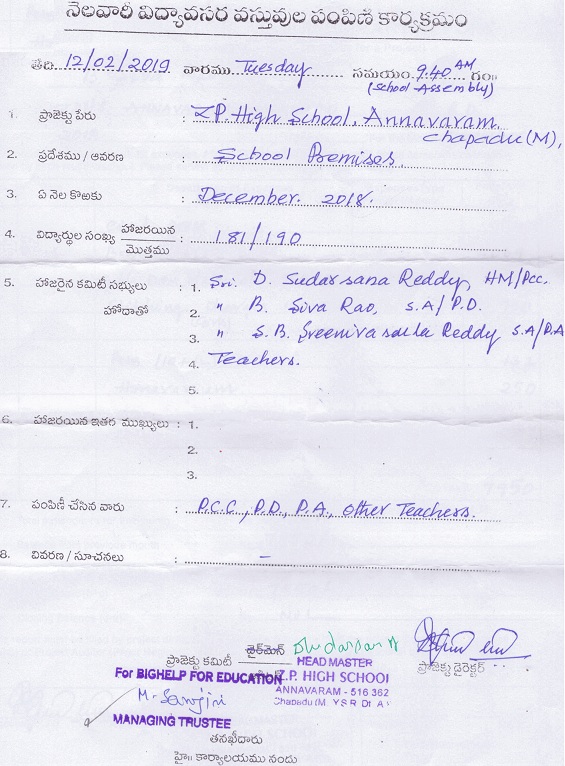 నెలవారీ విద్యావసర వస్తువుల పంపిణీ కార్యక్రమం
తేది. 12/02/2019 వారము Tuesday సమయం. 9.40 AM గం॥
(School Assembly)
1. ప్రాజెక్టు పేరు : Z.P. High School, Annavaram.
Chapadu (M),
2. ప్రదేశము / ఆవరణ : School Premises.
3. ఏ నెల కొఱకు : December. 2018.
4. విద్యార్థుల సంఖ్య హాజరయిన / మొత్తము : 181/190
5. హాజరైన కమిటీ సభ్యులు : 1. Sri. D. Sudarsana Reddy, HM/Pcc.
హోదాతో 2. " B. Siva Rao, S.A/P.D.
3. " S.B. Sreenivasulla Reddy S.A/P.A
4. Teachers.
5.
6. హాజరయిన ఇతర ముఖ్యులు : 1.
2.
3.
7. పంపిణీ చేసిన వారు : P.C.C., P.D., P.A., Other Teachers.
8. వివరణ / సూచనలు : –
ప్రాజెక్టు కమిటీ ఛైర్‌మెన్
HEAD MASTER
ప్రాజెక్టు డైరెక్టర్
For BIGHELP FOR EDUCATION
Z.P. HIGH SCHOOL
ANNAVARAM - 516 362
Chapadu (M. Y S R Dt. A
M. Sanjini
MANAGING TRUSTEE
తనఖీదారు
హై॥ కార్యాలయము నందు